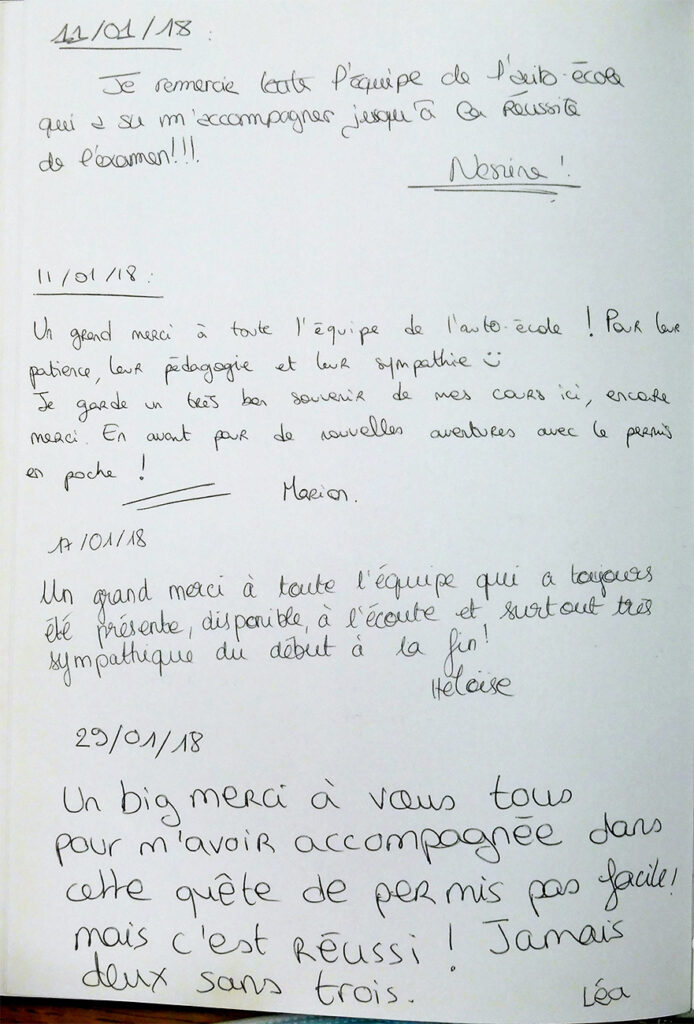 11/01/18 :
Je remercie toute l'équipe de l'auto-école
qui a su m'accompagner jusqu'à la réussite
de l'examen!!!
Nesrine !
11/01/18 :
Un grand merci à toute l'équipe de l'auto-école ! Pour leur
patience, leur pédagogie et leur sympathie ☺
Je garde un très bon souvenir de mes cours ici, encore
merci. En avant pour de nouvelles aventures avec le permis
en poche !
Marion.
17/01/18
Un grand merci à toute l'équipe qui a toujours
été présente, disponible, à l'écoute et surtout très
sympathique du début à la fin!
Héloïse
29/01/18
Un big merci à vous tous
pour m'avoir accompagnée dans
cette quête de permis pas facile!
mais c'est réussi ! Jamais
deux sans trois.
Léa